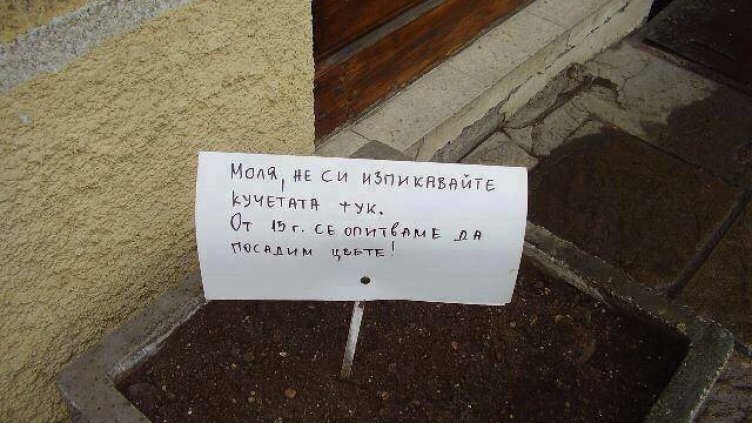 Моля, не си изпикавайте
кучетата тук.
От 15 г. се опитваме да
посадим цвете!